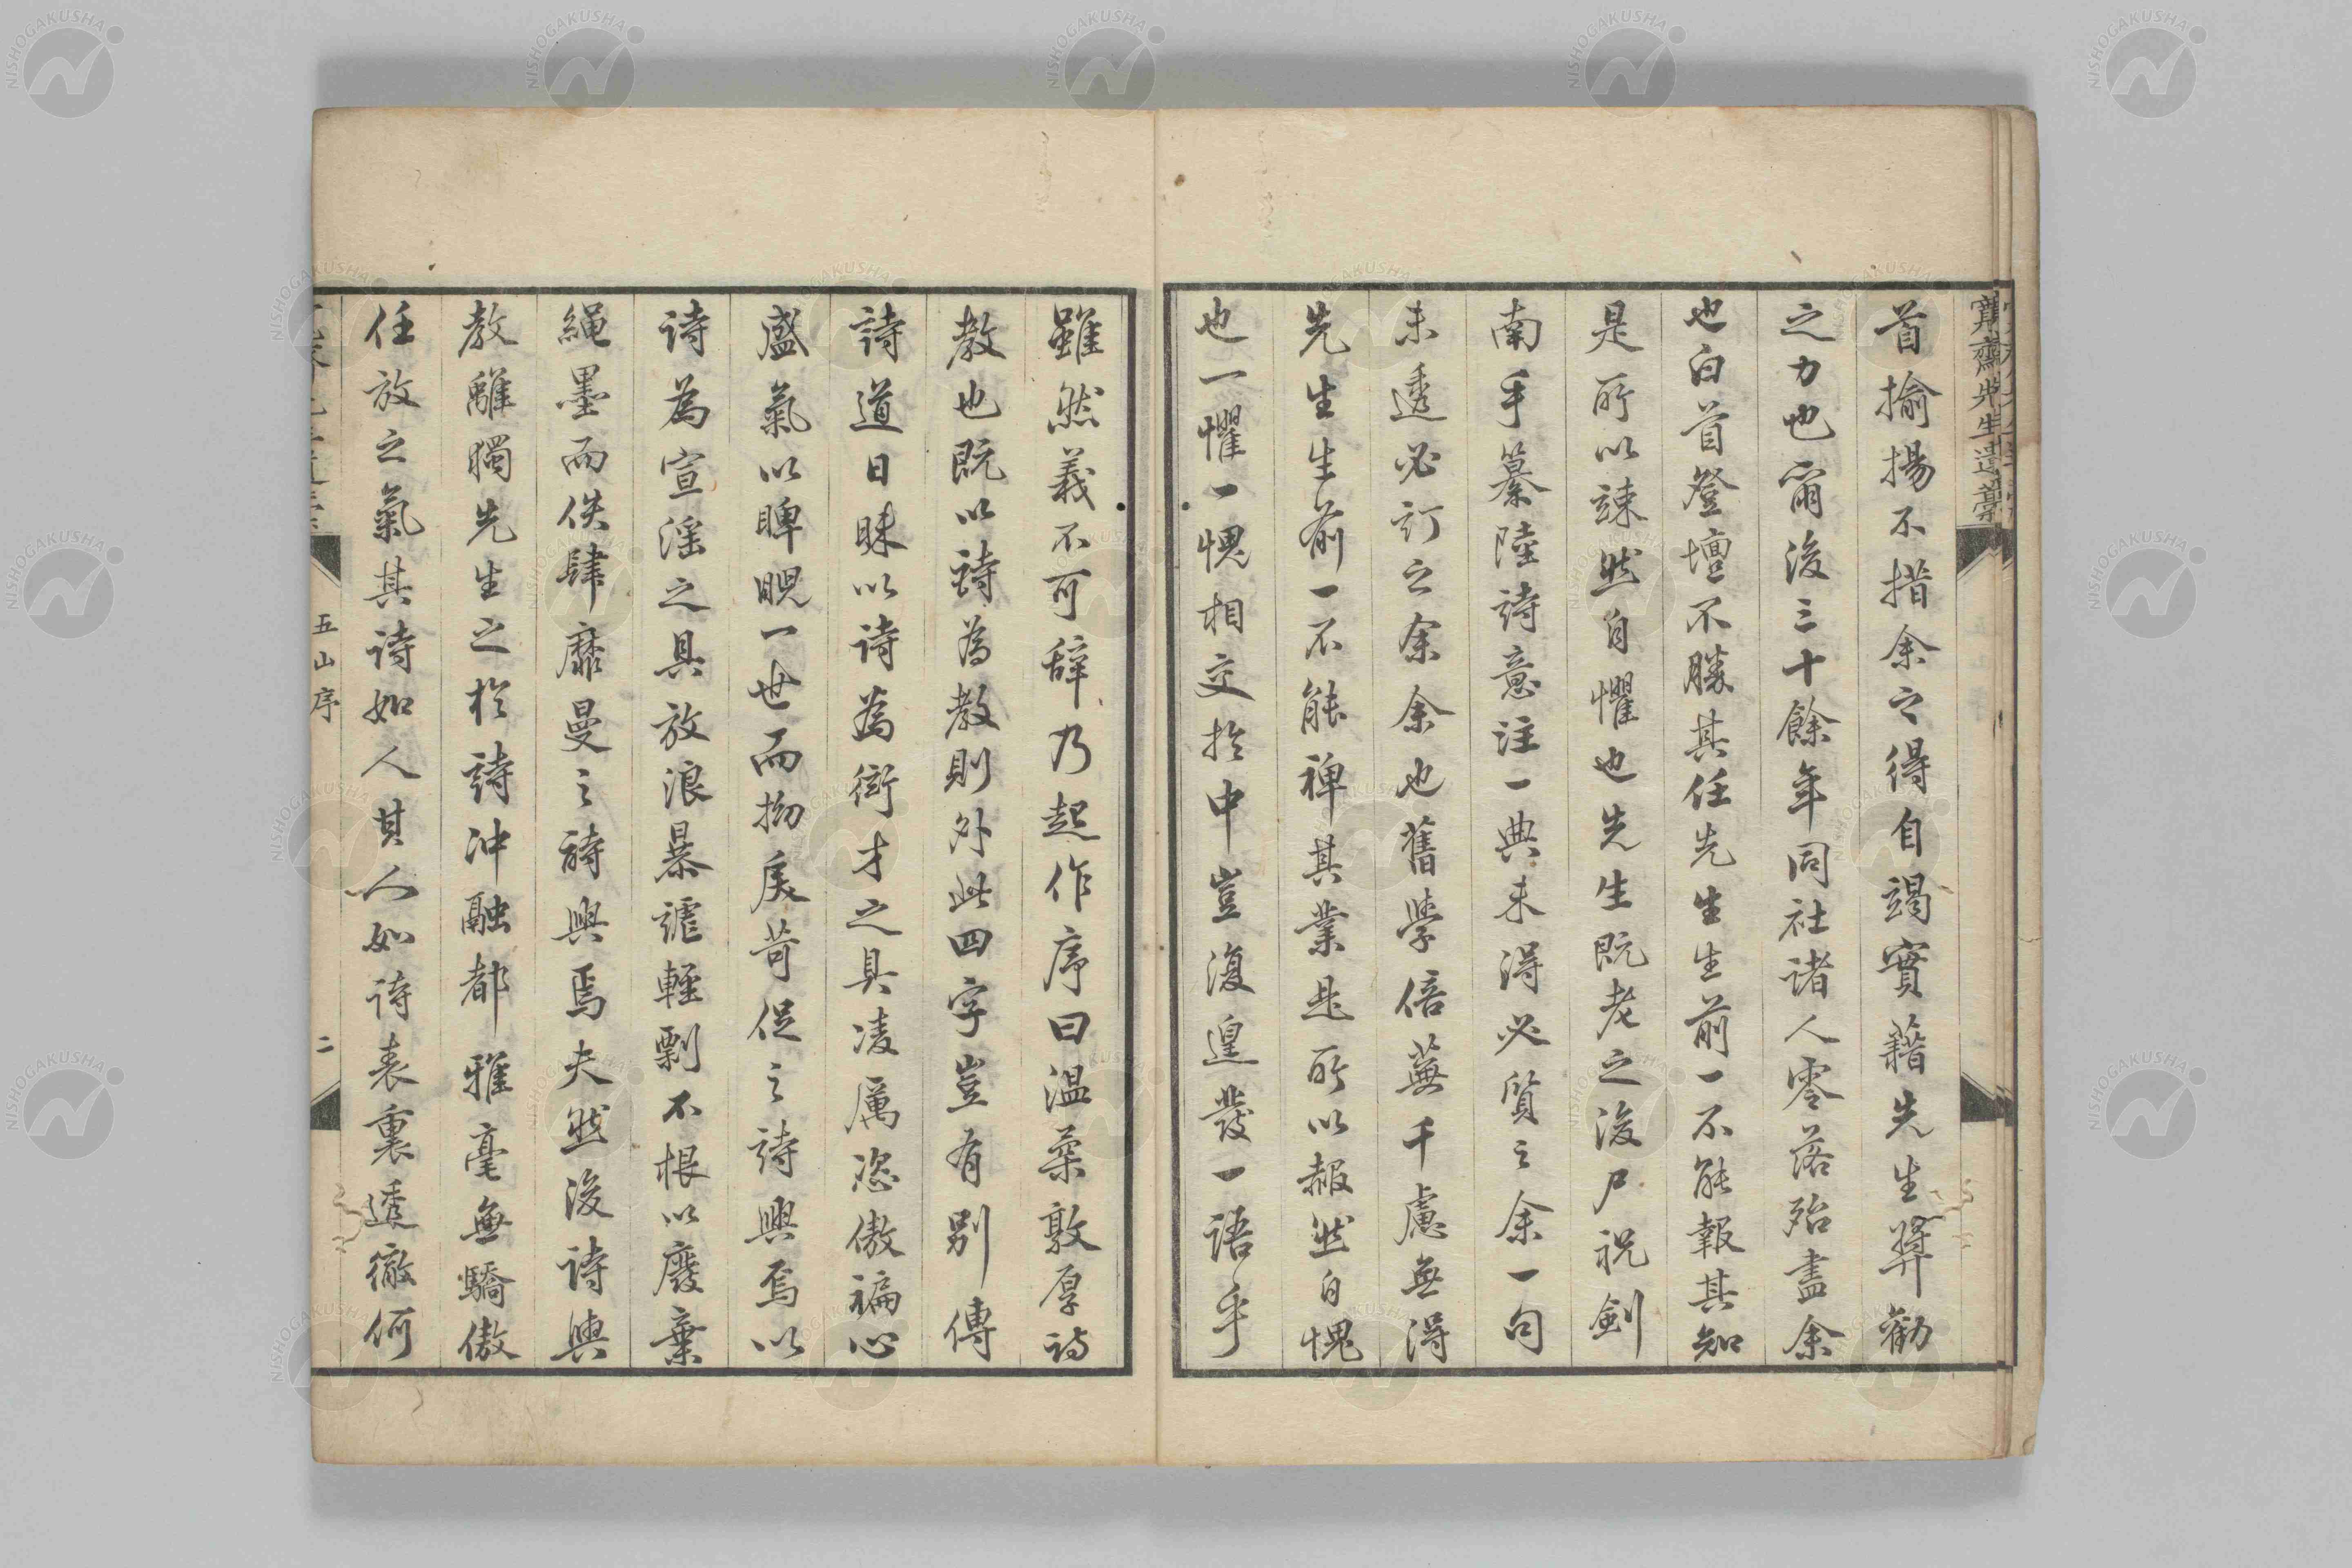 寧齋先生遺藁
首揄揚不措余之得自竭實藉先生奬勸
之力也爾後三十餘年同社諸人零落殆盡余
也白首登壇不勝其任先生生前一不能報其知
是所以竦然自懼也先生既老之後尸祝劍
南手纂陸詩意注一典未得必質之余一句
未透必訂之余余也舊學倍蕪千慮無得
先生生前一不能裨其業是所以赧然自愧
也一懼一愧相交於中豈復遑發一語乎
雖然義不可辭乃起作序曰温柔敦厚詩
教也既以詩為教則外此四字豈有別傳
詩道日昧以詩為衒才之具凌厲恣傲褊心
盛氣以睥睨一世而拗戾苛促之詩興焉以
詩為宣淫之具放浪暴謔輕剽不根以廢棄
繩墨而佚肆靡曼之詩興焉夫然後詩與
教離獨先生之於詩沖融都雅毫無驕傲
任放之氣其詩如人其人如詩表裏透徹何
五山序
二
NISHOGAKUSHA